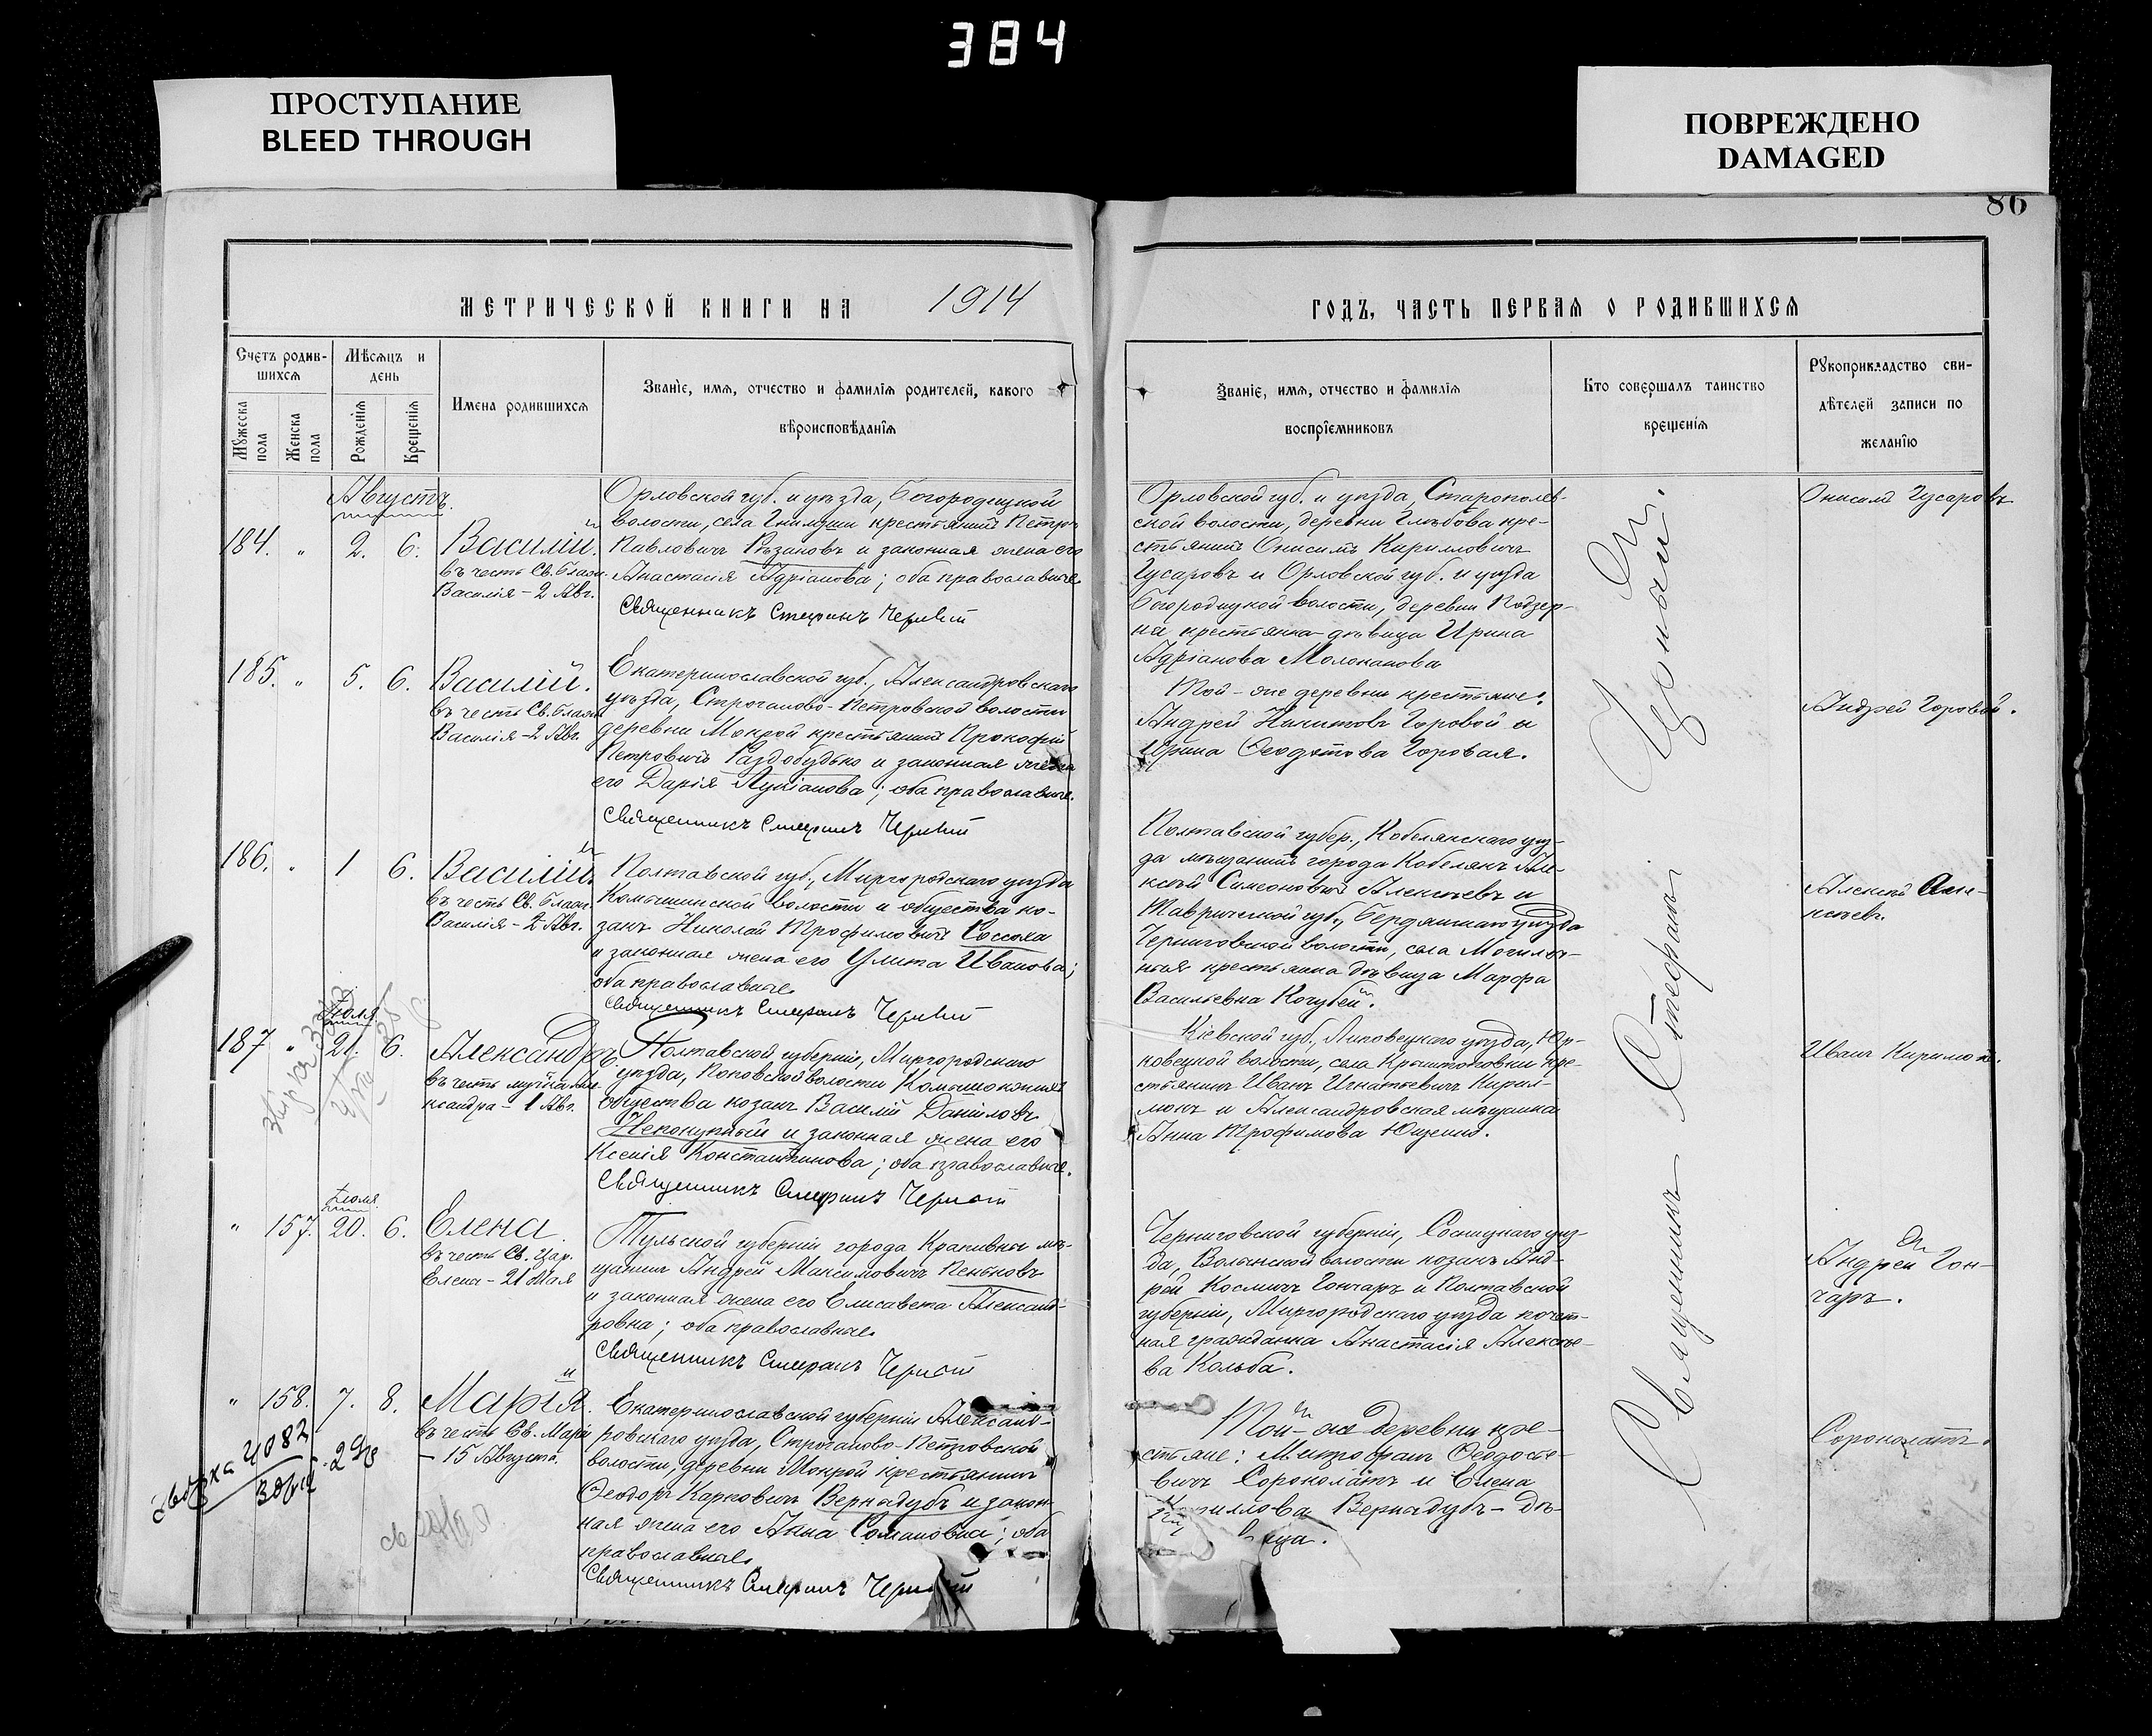 384
ПРОСТУПАНИЕ
BLEED THROUGH
ПОВРЕЖДЕНО
DAMAGED
86
МЕТРИЧЕСКОЙ КНИГИ НА 1914
ГОДЪ, ЧАСТЬ ПЕРВАЯ О РОДИВШИХСЯ
Счетъ родив-
шихся
Мужеска пола
Женска пола
Мѣсяцъ и
день
Рожденія
Крещенія
Имена родившихся
Званіе, имя, отчество и фамилія родителей, какого
вѣроисповѣданія
Званіе, имя, отчество и фамилія
воспріемниковъ
Кто совершалъ таинство
крещенія
Рукоприкладство сви-
дѣтелей записи по
желанію
Августъ.
184. " 2. 6. Василій.
въ честь Св. Блаж.
Василія - 2 Авг.
Орловской губ. и уѣзда, Богородицкой
волости, села крестьянинъ Петръ
Павловичъ Рѣзановъ и законная жена его
Анастасія Адріанова; оба православные.
Священникъ Стефанъ
Орловской губ. и уѣзда,
ской волости, деревни Глѣбова кре-
стьянинъ Онисимъ Кирилловичъ
Гусаровъ и Орловской губ. и уѣзда
Богородицкой волости, деревни Подзер-
на крестьянка дѣвица Ирина
Адріанова Молоканова
Онисим Гусаровъ
185. " 5. 6. Василій.
въ честь Св. Блаж.
Василія - 2 Авг.
Екатеринославской губ., Александровскаго
уѣзда, Строганово-Петровской волости
деревни Мокрой крестьянинъ Прокофій
Петровичъ Раздобудько и законная жена
его Дарія Луліанова; оба православные.
Священникъ Стефанъ
Той-же деревни крестьяне:
Андрей Никитовъ Горовой и
Ирина Ѳеодотова Горовая.
Андрей Горовой.
186. " 1 6. Василій.
въ честь Св. Блаж.
Василія - 2 Авг.
Полтавской губ., Миргородскаго уѣзда
Комышинской волости и общества ко-
закъ Николай Трофимовичъ Россоха
и законная жена его Улита Иванова;
оба православные.
Священникъ Стефанъ
Полтавской губер., Кобелякскаго уѣз-
да мѣщанинъ города Кобелякъ Але-
ксѣй Симеоновичъ Алексѣевъ и
Таврической губ., Бердянскаго уѣзда
Черниговской волости, села
крестьянка дѣвица Марфа
Васильевна Кочубей.
Алексѣй Але-
ксѣев.
Іюля
187 " 21. 6. Александръ
въ честь муч. Але-
ксандра - 1 Авг.
Полтавской губерніи, Миргородскаго
уѣзда, Поповской волости
общества козакъ Василій Даніиловъ
Непокупный и законная жена его
Ксенія Константинова; оба православные.
Священникъ Стефанъ
Кіевской губ. Липовецкаго уѣзда, Юр-
ковецкой волости, села кре-
стьянинъ Иванъ Игнатьевичъ Кирил-
юкъ и Александровская мѣщанка
Анна Трофимова
Иванъ
Іюля
" 157. 20. 6. Елена
въ честь Св. Цар.
Елены - 21 Мая
Тульской губерніи города Крапивны мѣ-
щанинъ Андрей Максимовичъ Пеньковъ
и законная жена его Елисавета Александ-
ровна; оба православные.
Священникъ Стефанъ
Черниговской губерніи, Сосницкаго уѣз-
да, Волынской волости козакъ Анд-
рей Космичъ Гончаръ и Полтавской
губерніи, Миргородскаго уѣзда почет-
ная гражданка Анастасія Алексѣе-
ва Кольба.
Андрей Гон-
чаръ.
" 158. 7. 8. Марія.
въ честь Св. Маріи
- 15 Августа.
Екатеринославской губерніи Александ-
ровскаго уѣзда, Строганово-Петровской
волости, деревни Мокрой крестьянинъ
Ѳеодоръ Карповичъ Вернадубъ и закон-
ная жена его Анна Романовна; оба
православные.
Священникъ Стефанъ
Той-же деревни кре-
стьяне: Митрофанъ Ѳеодосіе-
вичъ Сороколатъ и Елена
Вернадубъ - дѣ-
вица.
Сороколатъ.
4082
Священникъ Стефанъ